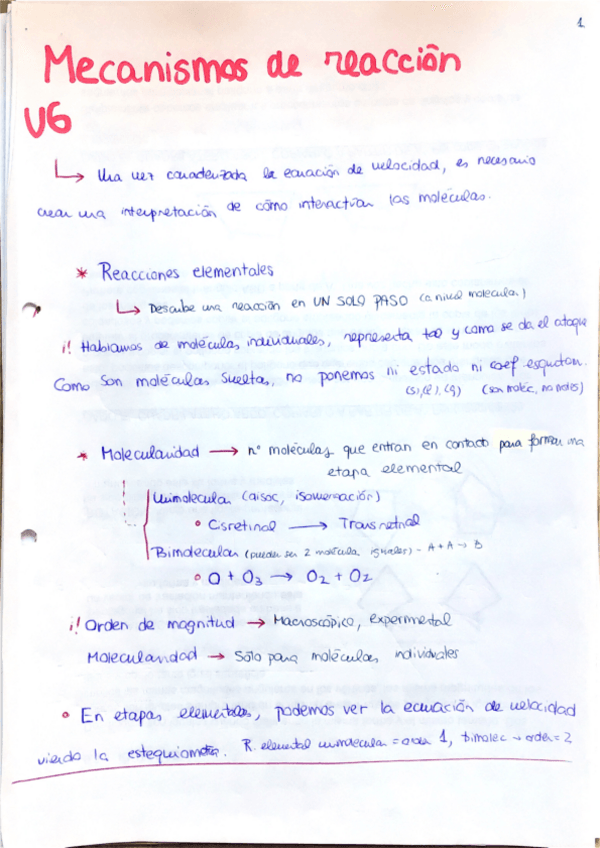 1
Mecanismos de reacción
U6
↳ Una vez caracterizada la ecuación de velocidad, es necesario
crear una interpretación de cómo interactúan las moléculas.
* Reacciones elementales
↳ Describe una reacción en UN SOLO PASO (a nivel molecular)
¡! Hablamos de moléculas individuales, representa tal y como se da el ataque
Como son moléculas sueltas, no ponemos ni estado ni coef esqutom.
(s), (l), (g) (son molec, no moles)
* Molecularidad → nº moléculas que entran en contacto para formar una
etapa elemental
Unimolecular (disoc, isomerización)
• Cisretinal → Transretinal
Bimolecular (pueden ser 2 molécula iguales) - A + A → B
• O + O₃ → O₂ + O₂
¡! Orden de magnitud → Macroscópico, experimental
Molecularidad → Sólo para moléculas individuales
• En etapas elementales, podemos ver la ecuación de velocidad
viendo la estequiometría. R. elemental unimolecular = orden 1, bimolec → orden = 2